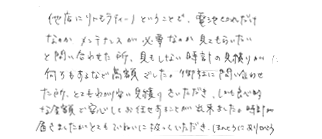 他店に（リトモラティーノ）ということで、電池交換だけ
なのか メンテナンスが必要なのか見てもらいたい
と問い合わせた所、見もしない時計の見積りが！
何ともすごく高額でした。御社に問い合わせ
た所、とてもわかり易い見積りをいただき、しかも良心的
な金額で安心してお任せすることが出来ました。時計が
届きましたがとてもていねいに扱っていただき、ほんとうにありがとう